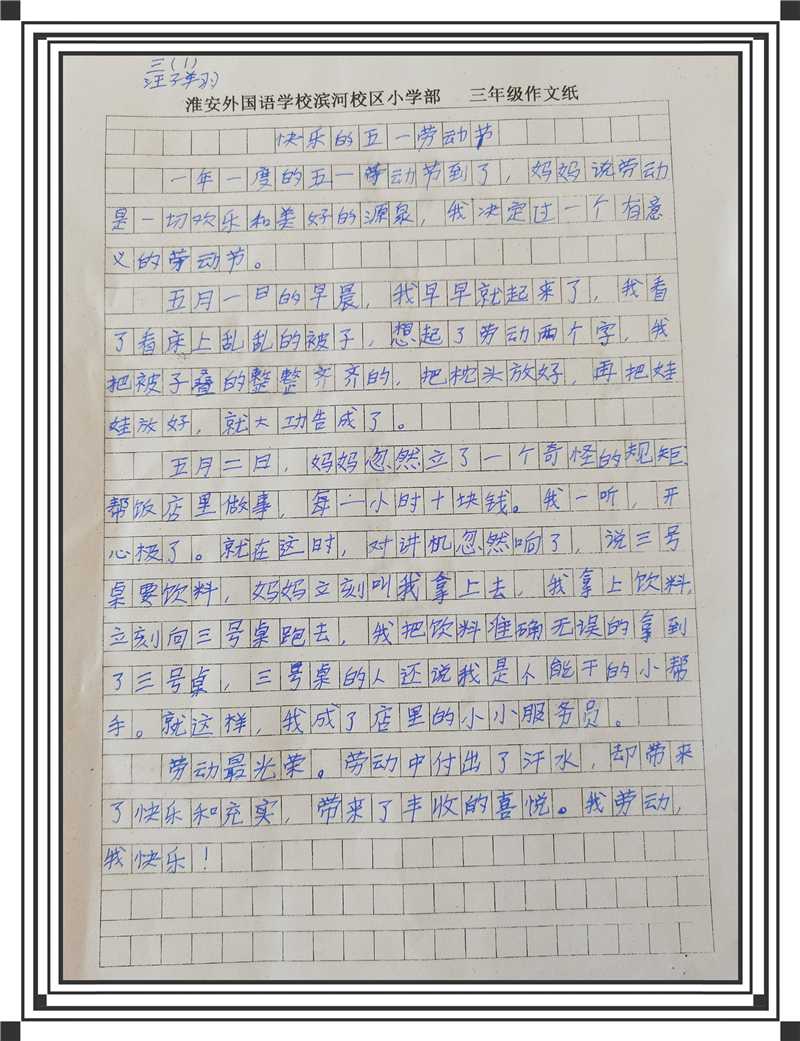 三(1)
汪子羽
淮安外国语学校滨河校区小学部 三年级作文纸
快乐的五一劳动节
一年一度的五一劳动节到了，妈妈说劳动
是一切欢乐和美好的源泉，我决定过一个有意
义的劳动节。
五月一日的早晨，我早早就起来了，我看
了看床上乱乱的被子，想起了劳动两个字，我
把被子叠的整整齐齐的，把枕头放好，再把娃
娃放好，就大功告成了。
五月二日，妈妈忽然立了一个奇怪的规矩
帮饭店里做事，每一小时十块钱。我一听，开
心极了。就在这时，对讲机忽然响了，说三号
桌要饮料，妈妈立刻叫我拿上去，我拿上饮料，
立刻向三号桌跑去，我把饮料准确无误的拿到
了三号桌，三号桌的人还说我是个能干的小帮
手。就这样，我成了店里的小小服务员。
劳动最光荣。劳动中付出了汗水，却带来
了快乐和充实，带来了丰收的喜悦。我劳动，
我快乐！